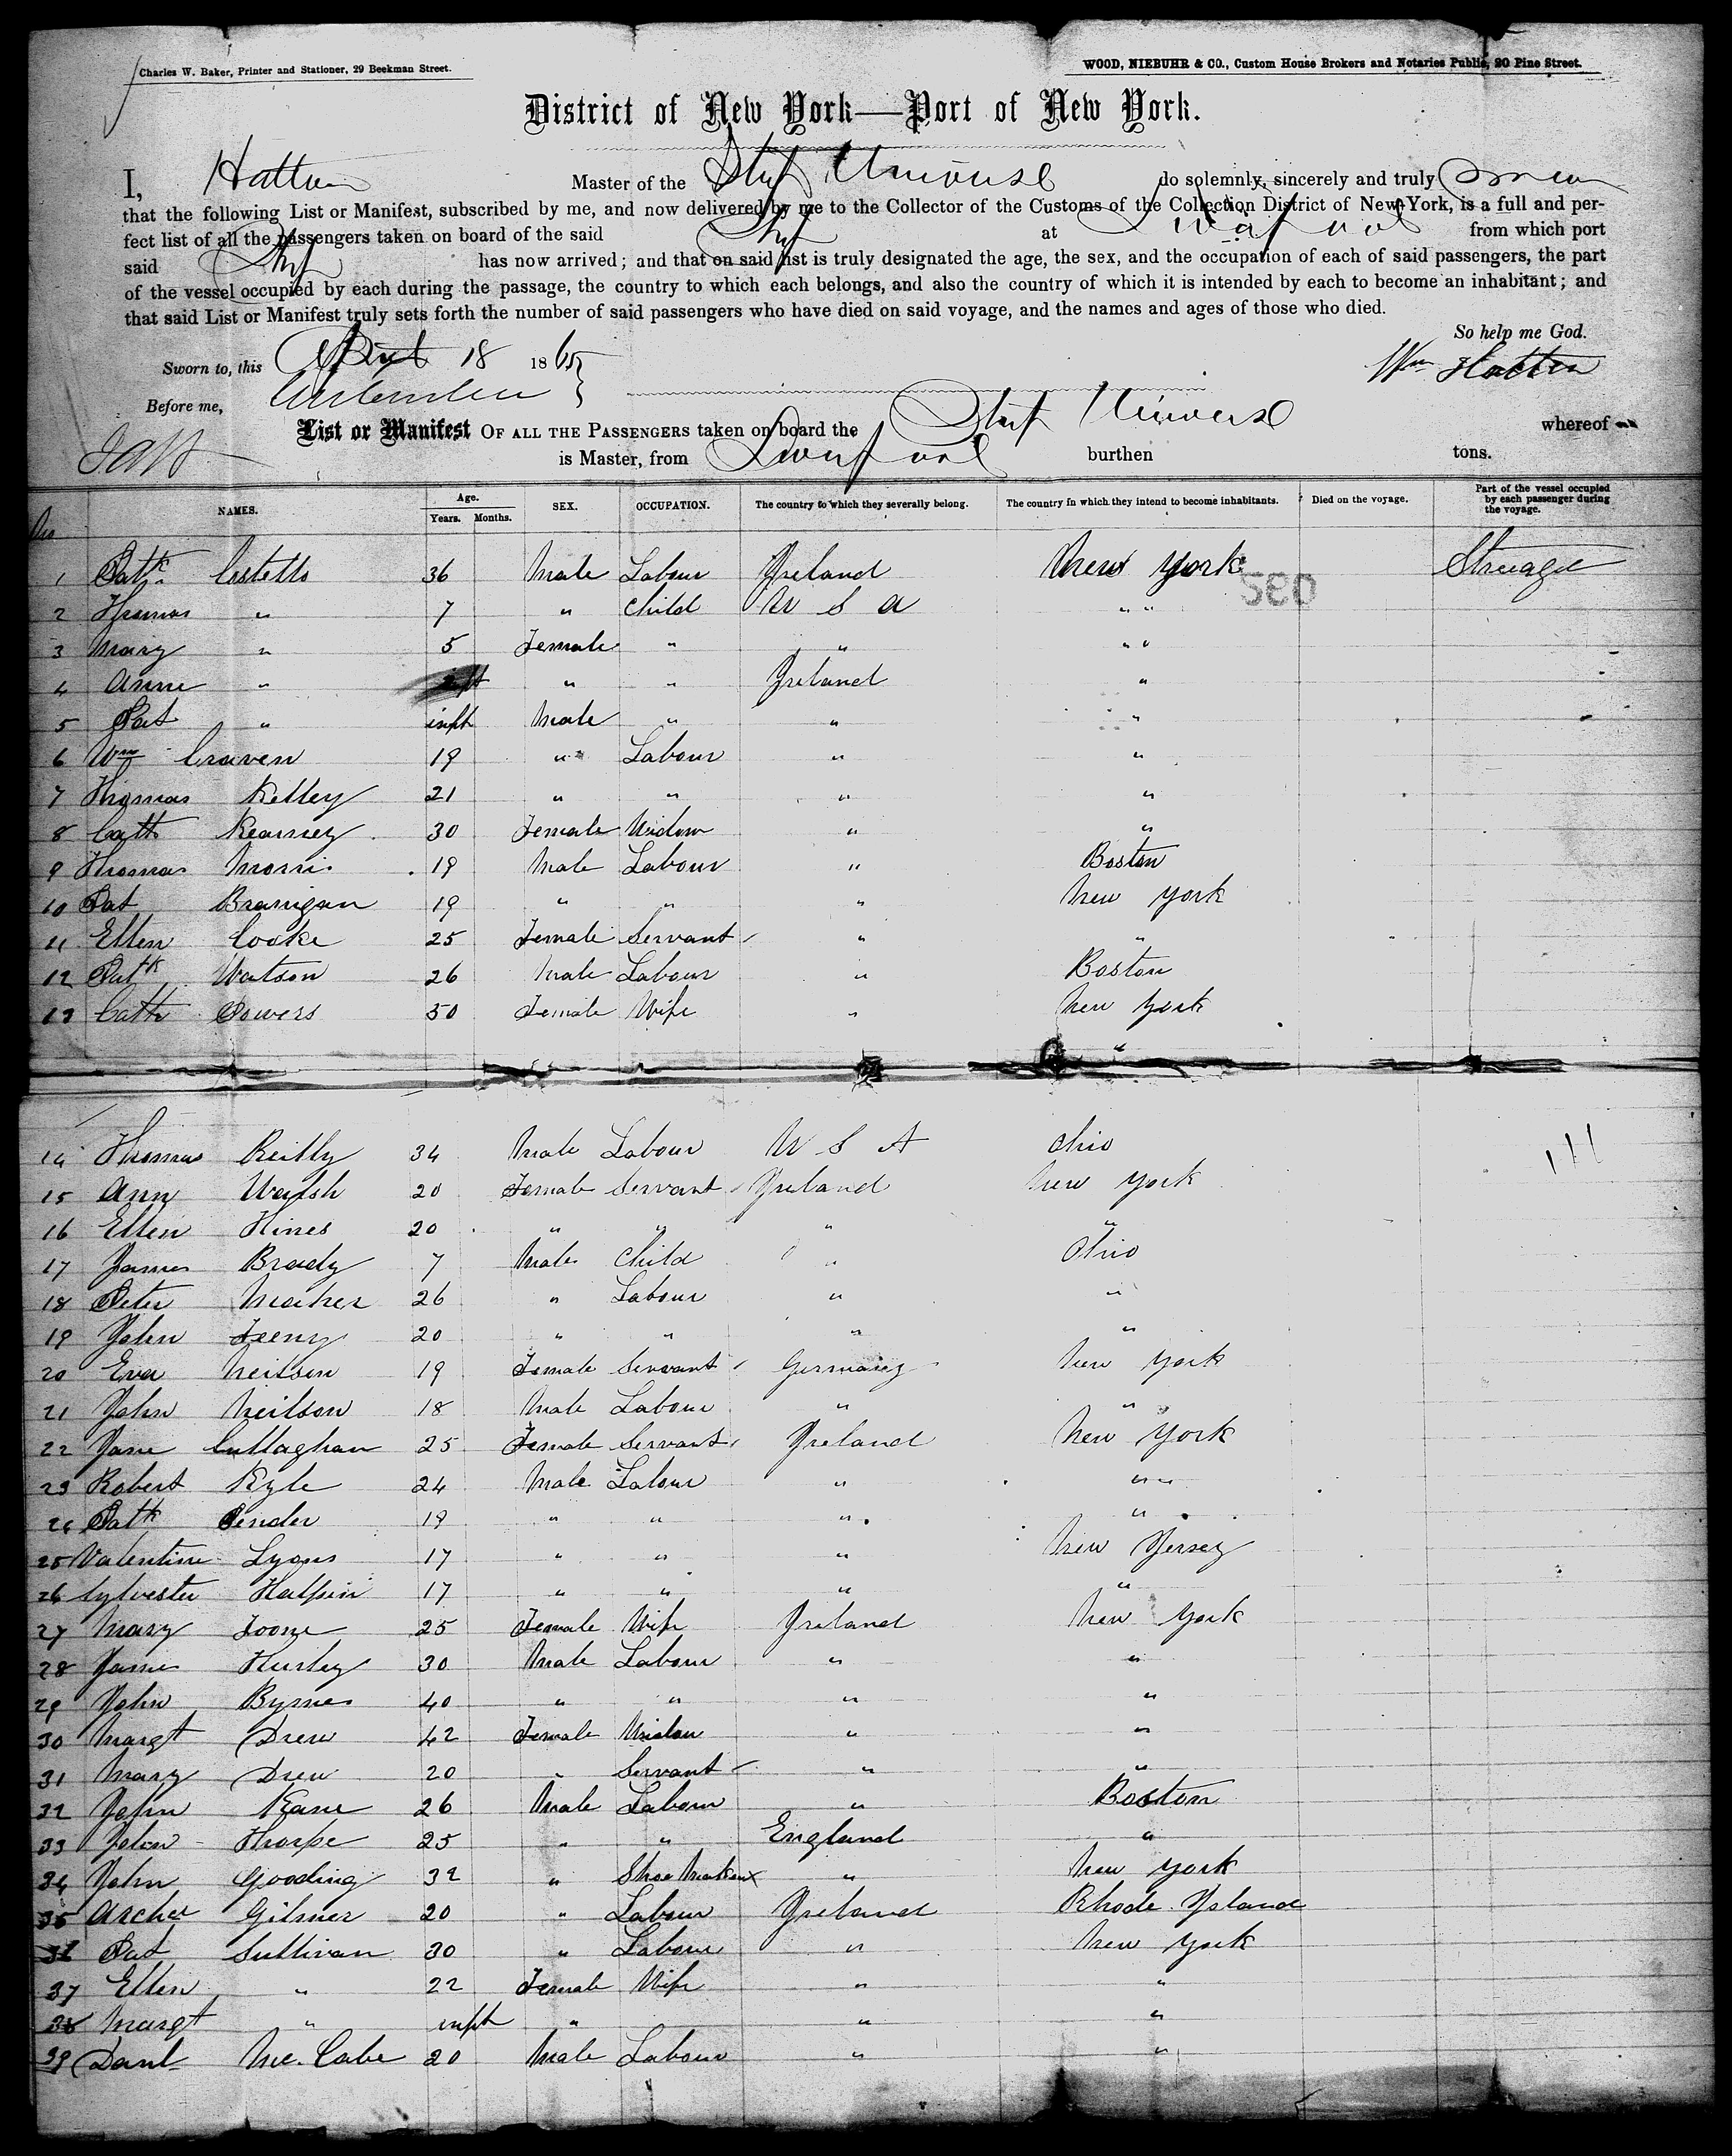 Charles W. Baker, Printer and Stationer, 29 Beekman Street.
WOOD, NIEBUHR & CO., Custom House Brokers and Notaries Public, 20 Pine Street.
District of New York—Port of New York.
I, Hatten Master of the Ship Universe do solemnly, sincerely and truly swear
that the following List or Manifest, subscribed by me, and now delivered by me to the Collector of the Customs of the Collection District of New York, is a full and per-
fect list of all the passengers taken on board of the said Ship at Liverpool from which port
said Ship has now arrived; and that on said list is truly designated the age, the sex, and the occupation of each of said passengers, the part
of the vessel occupied by each during the passage, the country to which each belongs, and also the country of which it is intended by each to become an inhabitant; and
that said List or Manifest truly sets forth the number of said passengers who have died on said voyage, and the names and ages of those who died.
So help me God.
Sworn to, this April 18 1865
Wm Hatten
Before me,
List or Manifest OF ALL THE PASSENGERS taken on board the Ship Universe whereof
is Master, from Liverpool burthen tons.
No NAMES. Age. Years. Months. SEX. OCCUPATION. The country to which they severally belong. The country in which they intend to become inhabitants. Died on the voyage. Part of the vessel occupied by each passenger during the voyage.
1 Patk Costello 36 Male Labour Ireland New York Steerage
2 Thomas " 7 " Child U S A " "
3 Mary " 5 Female " " " "
4 Anne " inft " " Ireland "
5 Pat " inft Male " " "
6 Wm Craven 19 " Labour " "
7 Thomas Kelley 21 " " " "
8 Cath Kearney 30 Female Widow " "
9 Thomas Morris 19 Male Labour " Boston
10 Pat Branigan 19 " " " New York
11 Ellen Cooke 25 Female Servant " "
12 Patk Watson 26 Male Labour " Boston
13 Cath Powers 50 Female Wife " New York
"
14 Thomas Reilly 34 Male Labour U S A Ohio
15 Ann Walsh 20 Female Servant Ireland New York
16 Ellen Hines 20 " " " "
17 James Brady 7 Male Child " Ohio
18 Peter Maher 26 " Labour " "
19 John Feeny 20 " " " "
20 Eva Neilson 19 Female Servant Germany New York
21 John Neilson 18 Male Labour " "
22 Jane Cullaghan 25 Female Servant Ireland New York
23 Robert Kyle 24 Male Labour " " "
24 Patk Pender 19 " " " "
25 Valentine Lyons 17 " " " New Jersey
26 Sylvester Halpin 17 " " " "
27 Mary Toome 25 Female Wife Ireland New York
28 James Hurley 30 Male Labour " "
29 John Byrnes 40 " " " "
30 Margt Drew 42 Female Widow " "
31 Mary Drew 20 " Servant " "
32 John Kane 26 Male Labour " Boston
33 John Thorpe 25 " " England "
34 John Gooding 32 " Shoe Maker " New York
35 Archer Gilmer 20 " Labour Ireland Rhode Island
36 Pat Sullivan 30 " Labour " New York
37 Ellen " 22 Female Wife " "
38 Margt " inft " " "
39 Danl Mc. Cabe 20 Male Labour " "